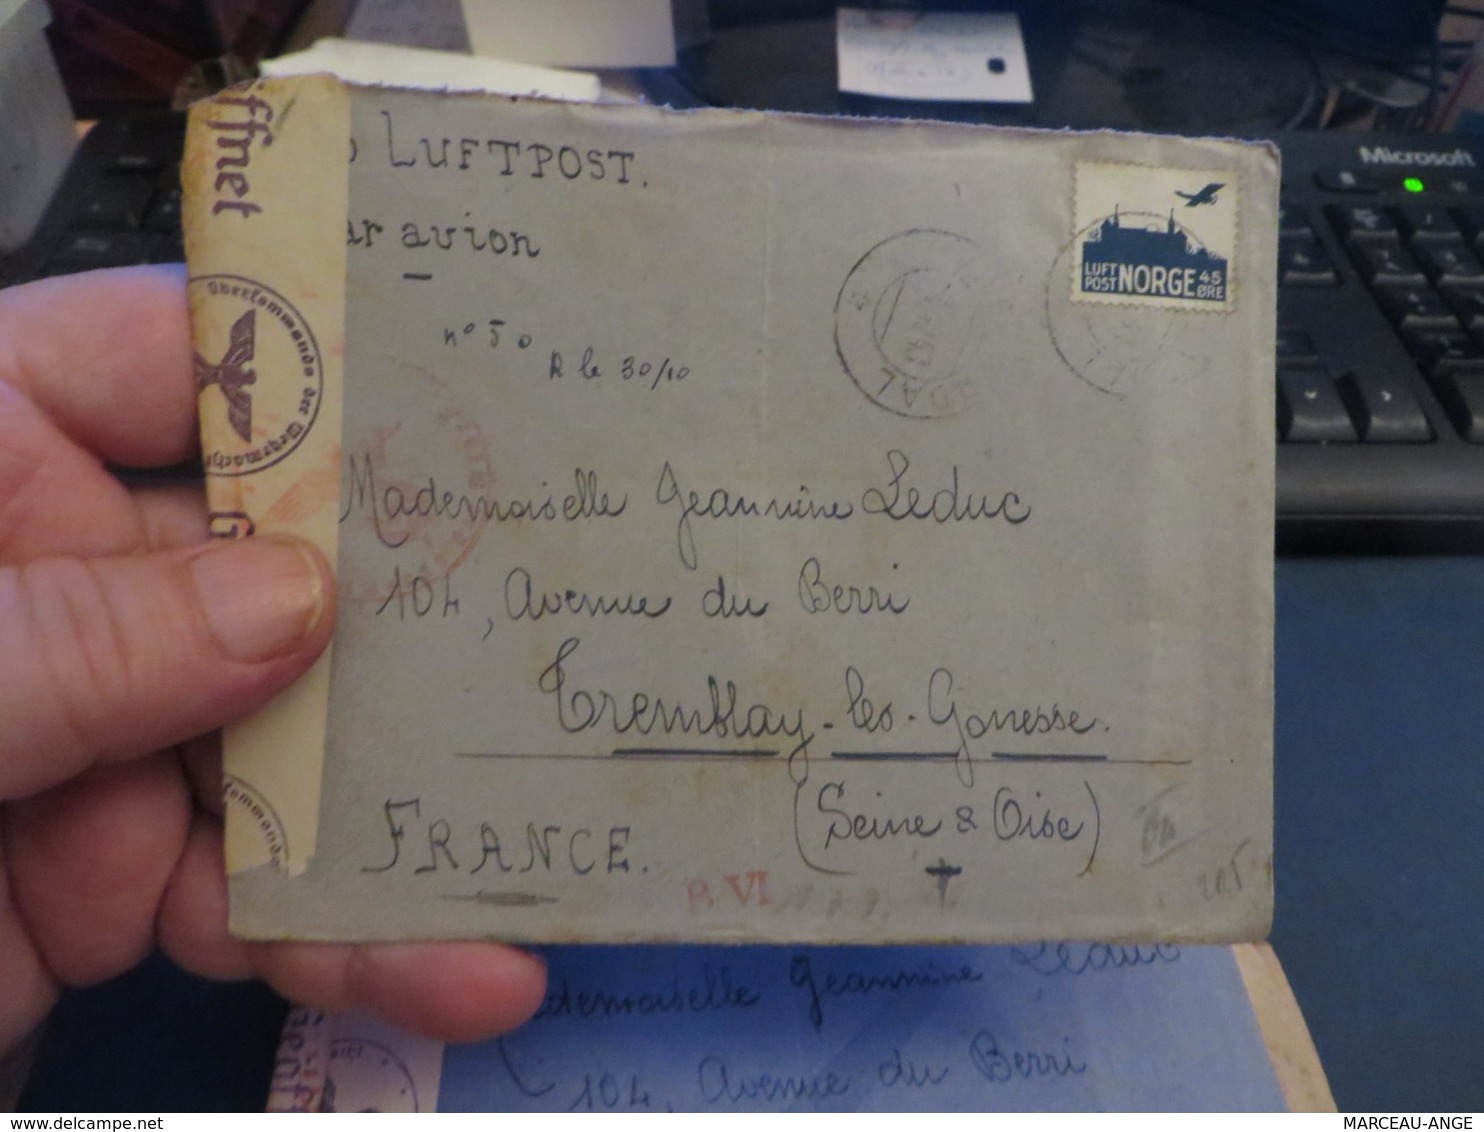 LUFTPOST.
par avion
n° 50
R le 30/10
LUFT
POST NORGE 45
ØRE
DAL
öffnet
Oberkommando der Wehrmacht
G
Mademoiselle Jeannine Leduc
104, Avenue du Berri
Tremblay-les-Gonesse.
(Seine & Oise)
FRANCE.
B VI
205
Mademoiselle Jeannine Leduc
104, Avenue du Berri
Microsoft
MARCEAU-ANGE